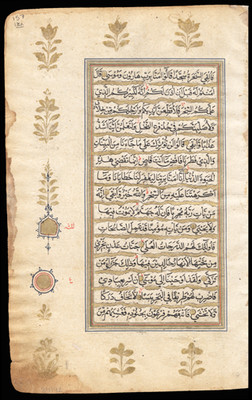 فَأُلْقِيَ السَّحَرَةُ سُجَّدًا قَالُوا آمَنَّا بِرَبِّ هَارُونَ وَمُوسَى قَالَ
آمَنْتُمْ لَهُ قَبْلَ أَنْ آذَنَ لَكُمْ إِنَّهُ لَكَبِيرُكُمُ الَّذِي
عَلَّمَكُمُ السِّحْرَ فَلَأُقَطِّعَنَّ أَيْدِيَكُمْ وَأَرْجُلَكُمْ مِنْ خِلَافٍ
وَلَأُصَلِّبَنَّكُمْ فِي جُذُوعِ النَّخْلِ وَلَتَعْلَمُنَّ أَيُّنَا أَشَدُّ
عَذَابًا وَأَبْقَى قَالُوا لَنْ نُؤْثِرَكَ عَلَى مَا جَاءَنَا مِنَ الْبَيِّنَاتِ
وَالَّذِي فَطَرَنَا فَاقْضِ مَا أَنْتَ قَاضٍ إِنَّمَا تَقْضِي هَذِهِ
الْحَيٰوةَ الدُّنْيَا إِنَّا آمَنَّا بِرَبِّنَا لِيَغْفِرَ لَنَا خَطَايَانَا وَمَا
أَكْرَهْتَنَا عَلَيْهِ مِنَ السِّحْرِ وَاللَّهُ خَيْرٌ وَأَبْقَى إِنَّهُ
مَنْ يَأْتِ رَبَّهُ مُجْرِمًا فَإِنَّ لَهُ جَهَنَّمَ لَا يَمُوتُ فِيهَا
وَلَا يَحْيَى وَمَنْ يَأْتِهِ مُؤْمِنًا قَدْ عَمِلَ الصَّالِحَاتِ
فَأُولَئِكَ لَهُمُ الدَّرَجَاتُ الْعُلَى جَنَّاتُ عَدْنٍ تَجْرِي
مِنْ تَحْتِهَا الْأَنْهَارُ خَالِدِينَ فِيهَا وَذَلِكَ جَزَاءُ مَنْ
تَزَكَّى وَلَقَدْ أَوْحَيْنَا إِلَى مُوسَى أَنْ أَسْرِ بِعِبَادِي
فَاضْرِبْ لَهُمْ طَرِيقًا فِي الْبَحْرِ يَبَسًا لَا تَخَافُ دَرَكًا
وَلَا تَخْشَى فَأَتْبَعَهُمْ فِرْعَوْنُ بِجُنُودِهِ فَغَشِيَهُمْ مِنَ